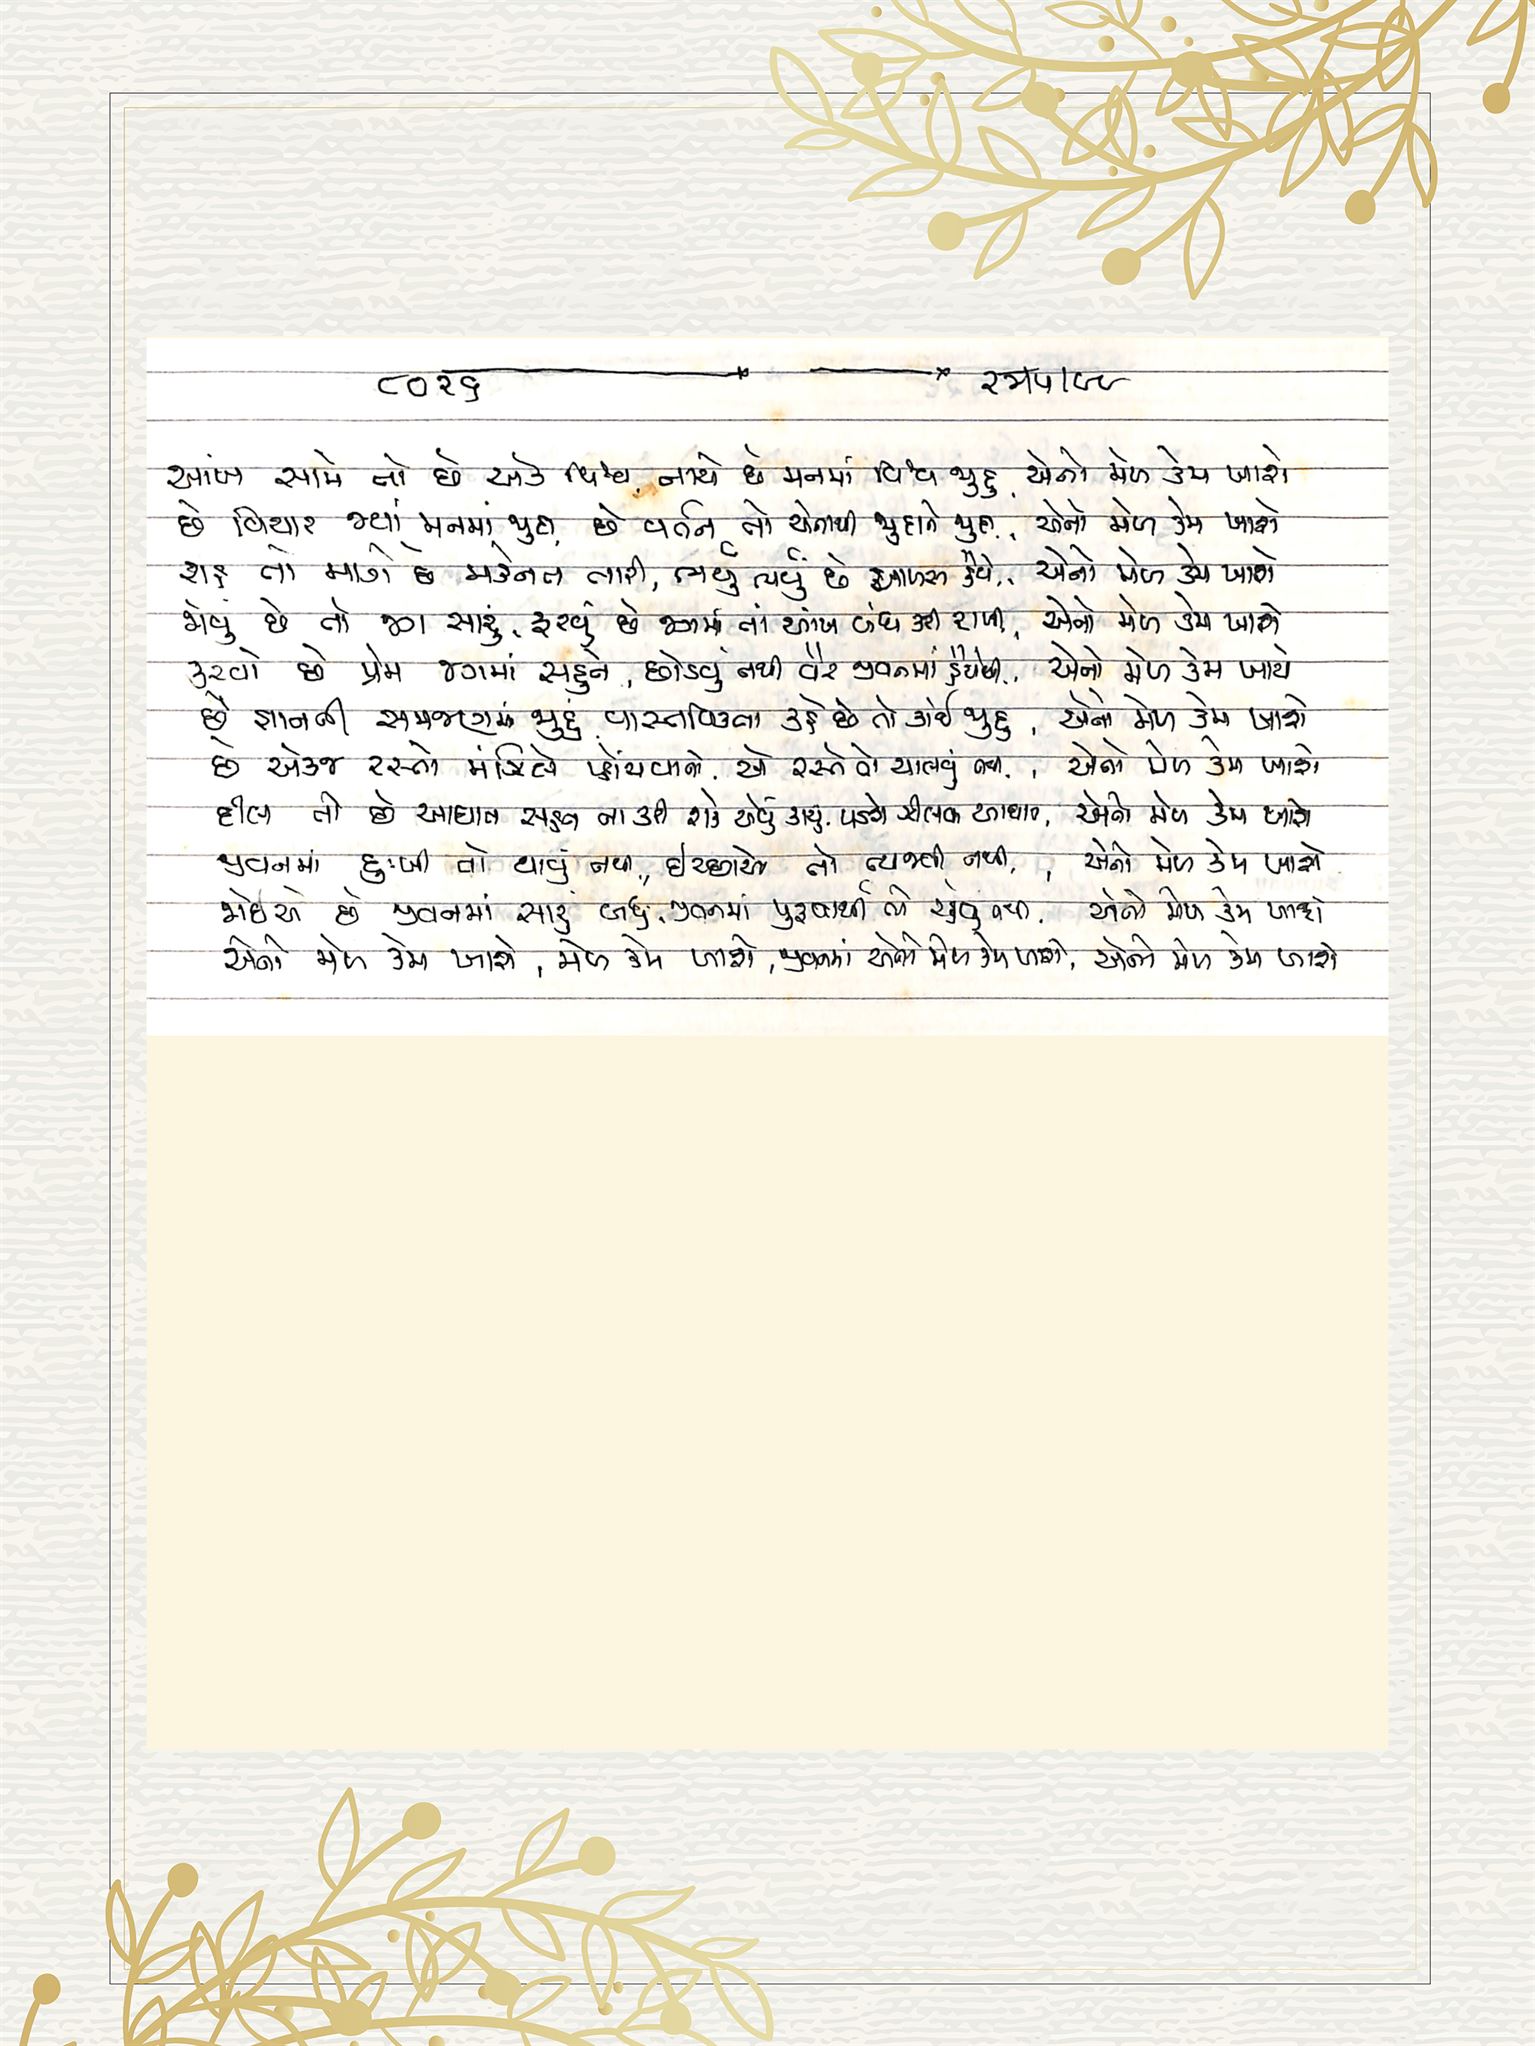 ૮૦૨૬
આંખ સામે તો છે એક વિશ્વ, નાચે છે મનમાં વિશ્વ જુદુ, એનો મેળ કેમ ખાશે
છે વિચાર જ્યાં મનમાં જુદા, છે વર્તન તો એનાથી જુદાને જુદા, એનો મેળ કેમ ખાશે
શરૂ તો માગે છે મહેનત તારી, ત્યજ્યું ત્યજ્યું છે આળસ હૈયે, એનો મેળ કેમ ખાશે
જોવું છે તો જગ સારું, ફરવું છે જગમાં તો આંખ બંધ કરી રાખી, એનો મેળ કેમ ખાશે
કરવો છે પ્રેમ જગમાં સહુને, છોડવું નથી વૈર જીવનમાં હૈયેથી, એનો મેળ કેમ ખાશે
છે જ્ઞાનની સમજણમાં જુદું, વાસ્તવિકતા કહે છે તો કાંઈ જુદુ, એનો મેળ કેમ ખાશે
છે એકજ રસ્તો મંઝિલે પ્હોંચવાનો, એ રસ્તે તો ચાલવું નથી, એનો મેળ કેમ ખાશે
દીલ તો છે આઘાત સહન ના કરી શકે એવું કાચું, પડશે ઝીલવા આઘાત, એનો મેળ કેમ ખાશે
જીવનમાં દુઃખી તો થાવું નથી, ઈચ્છાઓ તો ત્યજવી નથી, એનો મેળ કેમ ખાશે
જોઈએ છે જીવનમાં સારું બધું, જીવનમાં પુરૂષાર્થી તો થાવું નથી, એનો મેળ કેમ ખાશે
એનો મેળ કેમ ખાશે, મેળ કેમ ખાશે, જીવનમાં એનો મેળ કેમ ખાશે, એનો મેળ કેમ ખાશે